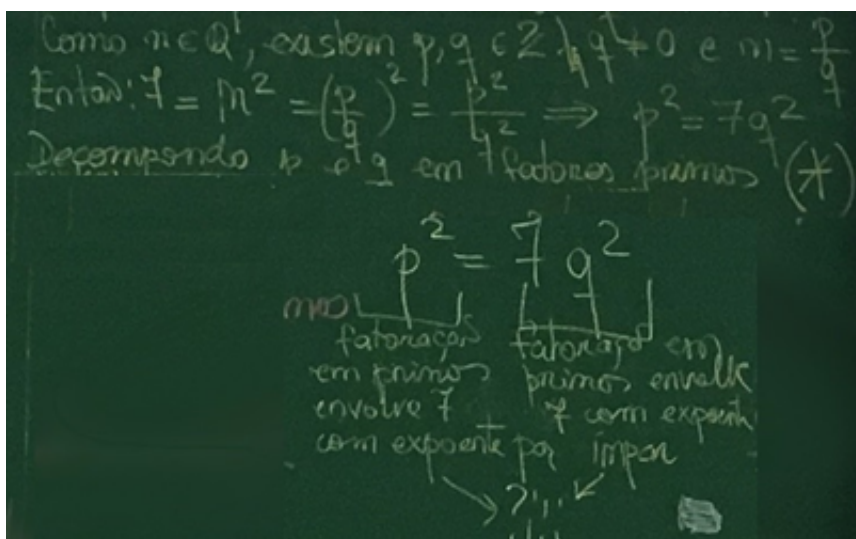 Como n ∈ Q, existem p, q ∈ Z | q ≠ 0 e n = p/q
Então: 7 = n² = (p/q)² = p²/q² ⇒ p² = 7q²
Decompondo p e q em fatores primos (*)
p² = 7 q²
fatoração
em primos
envolve 7
com expoente par
fatoração em
primos envolve
7 com expoente
ímpar
?!!